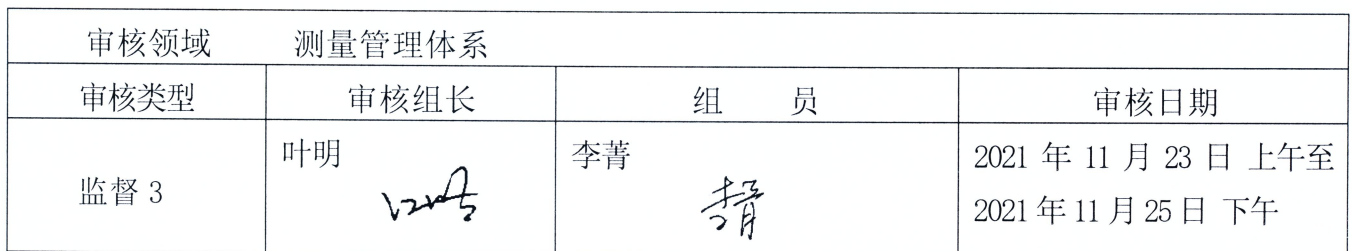 审核领域 测量管理体系
审核类型 审核组长 组 员 审核日期
监督 3
叶明
李菁
2021 年 11 月 23 日 上午至
2021 年 11 月 25 日 下午